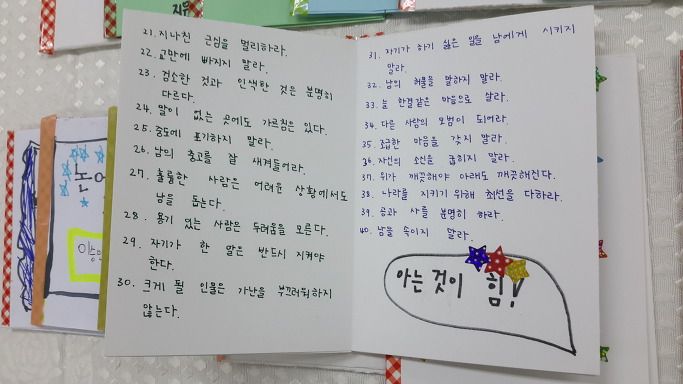 지유
21. 지나친 근심을 멀리하라.
22. 교만에 빠지지 말라.
23. 검소한 것과 인색한 것은 분명히
다르다.
24. 말이 없는 곳에도 가르침은 있다.
25. 중도에 포기하지 말라.
26. 남의 충고를 잘 새겨들어라.
27. 훌륭한 사람은 어려운 상황에서도
남을 돕는다.
28. 용기 있는 사람은 두려움을 모른다.
29. 자기가 한 말은 반드시 지켜야
한다.
30. 크게 될 인물은 가난을 부끄러워하지
않는다.
31. 자기가 하기 싫은 일을 남에게 시키지
말라.
32. 남의 허물을 말하지 말라.
33. 늘 한결같은 마음으로 살라.
34. 다른 사람의 모범이 되어라.
35. 조급한 마음을 갖지 말라.
36. 자신의 소신을 굽히지 말라.
37. 위가 깨끗해야 아래도 깨끗해진다.
38. 나라를 지키기 위해 최선을 다하라.
39. 공과 사를 분명히 하라.
40. 남을 속이지 말라.
아는 것이 힘!
논어